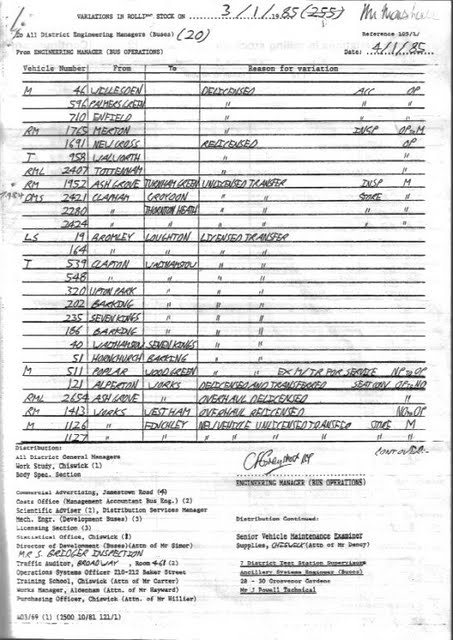 VARIATIONS IN ROLLING STOCK ON 3/1/1985 (255)
To All District Engineering Managers (Buses) (20) Reference 109/1/
From ENGINEERING MANAGER (BUS OPERATIONS) Date: 4/1/85
Vehicle Number From To Reason for variation
M 46 WILLESDEN DELICENSED ACC OP
596 PALMERS GREEN " " "
710 ENFIELD " " "
RM 1765 MERTON " INSP OP to M
1691 NEW CROSS RELICENSED OP
T 958 WALWORTH " "
RML 2407 TOTTENHAM " "
RM 1952 ASH GROVE TURNHAM GREEN UNLICENSED TRANSFER INSP M
DMS 2421 CLAPHAM CROYDON " " STORE "
2280 " THORNTON HEATH " " " "
2424 " " " " " "
LS 19 BROMLEY LOUGHTON LICENSED TRANSFER
164 " " " "
T 539 CLAPTON WALTHAMSTOW " "
548 " " " "
320 UPTON PARK " " "
202 BARKING " " "
235 SEVEN KINGS " " "
186 BARKING " " "
40 WALTHAMSTOW SEVEN KINGS " "
51 HORNCHURCH BARKING " "
M 511 POPLAR WOOD GREEN " " EX M/TR FOR SERVICE NP to OP
121 ALPERTON WORKS DELICENSED AND TRANSFERRED SEAT CONV OP to NO
RML 2654 ASH GROVE " OVERHAUL DELICENSED "
RM 1413 WORKS WEST HAM OVERHAUL RELICENSED NO to OP
M 1126 FINCHLEY NEW VEHICLE UNLICENSED TRANSFER STORE M
1127 " " " " " "
CONT OVER
Distribution:
All District General Managers
Work Study, Chiswick (1)
Body Spec. Section
ENGINEERING MANAGER (BUS OPERATIONS)
Commercial Advertising, Jamestown Road
Costs Office (Management Accountant Bus Eng.) (2)
Scientific Adviser (2), Distribution Services Manager
Mech. Engr. (Development Buses) (3)
Licensing Section (3)
Statistical Office, Chiswick
Director of Development (Buses)(Attn of Mr Simor)
MR S. BRIDGER INSPECTION
Traffic Auditor, BROADWAY, Room
Operations Systems Officer 210-212 Baker Street
Training School, Chiswick (Attn of Mr Carter)
Works Manager, Aldenham (Attn of Mr Hayward)
Purchasing Officer, Chiswick (Attn of Mr Willier)
Distribution Continued:
Senior Vehicle Maintenance Examiner
Supplies, CHISWICK (Attn of Mr Dancy)
7 District Test Station Supervisors
Ancillary Systems Engineer (Buses)
28 - 30 Grosvenor Gardens
Mr J Powell Technical
403/69 (1) (2500 10/81 121/1)